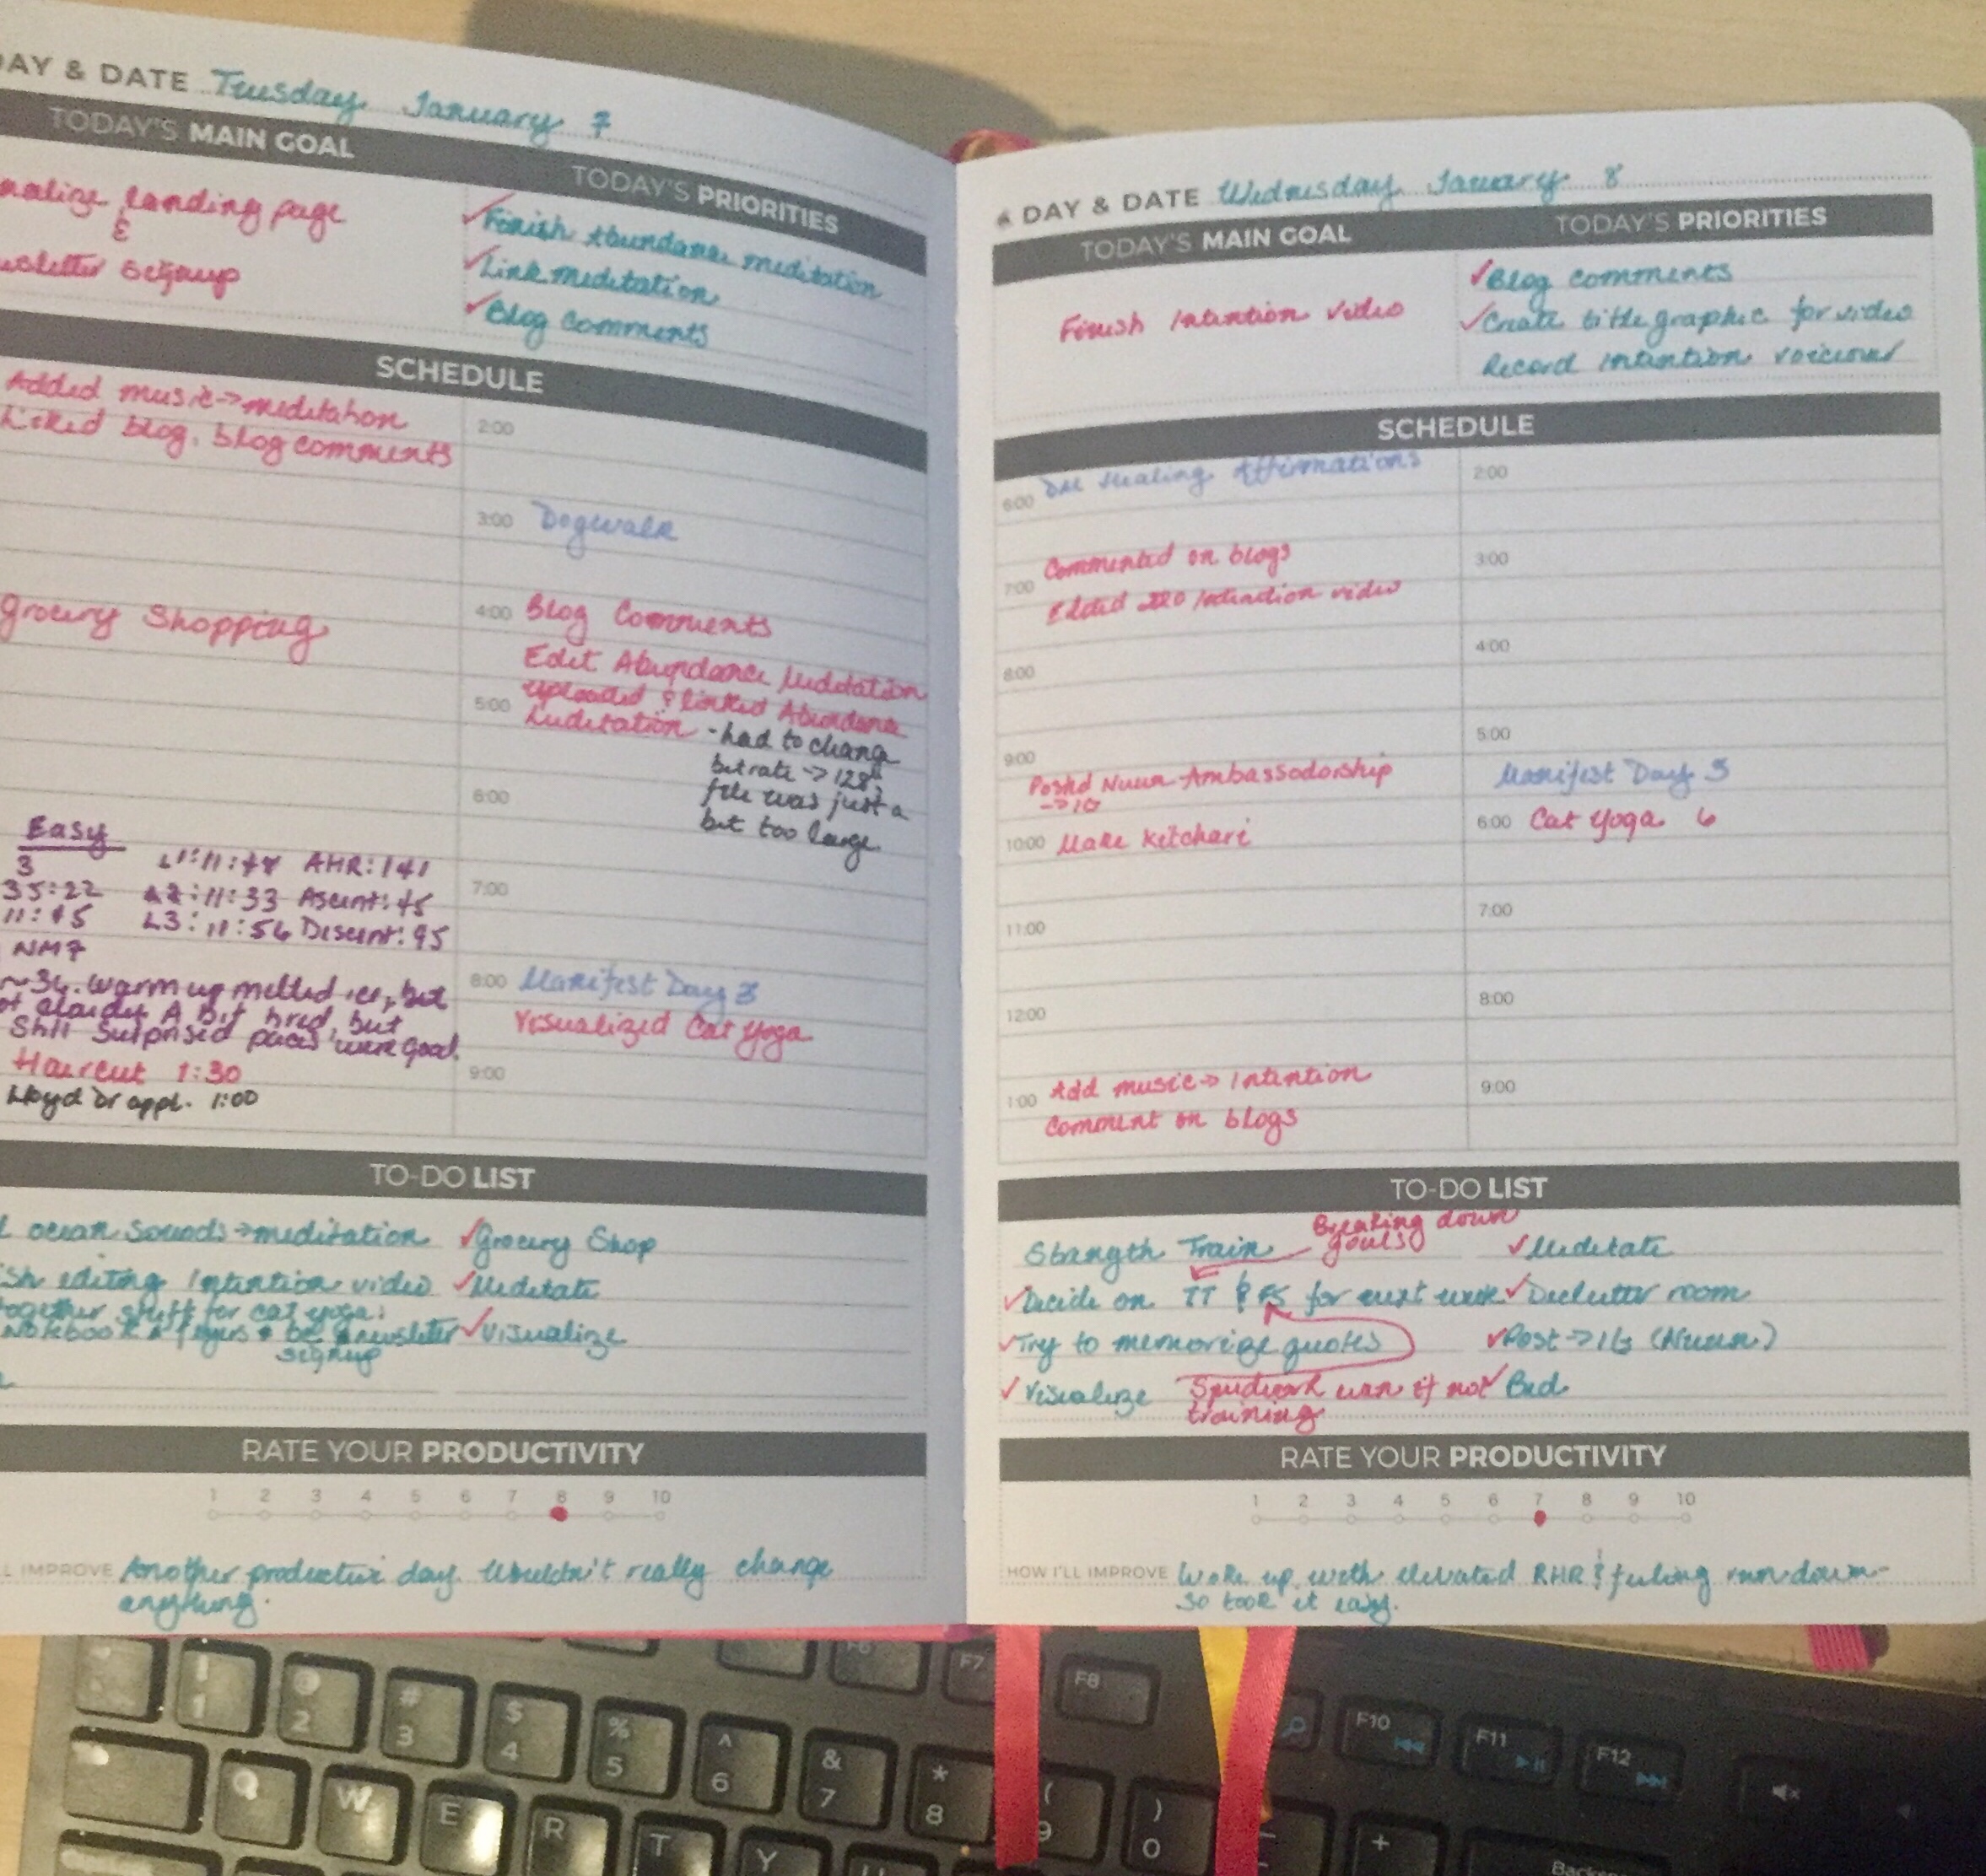 DAY & DATE Tuesday January 7
TODAY'S MAIN GOAL
TODAY'S PRIORITIES
landing page
&
signup
✓Finish Abundance meditation
✓Link meditation
✓Blog comments
SCHEDULE
Added music→meditation
Linked blog, blog comments
Grocery Shopping
Easy
3
35:22
11:45
AHR:141
L2:11:33 Ascent:45
L3:11:56 Descent:95
NM7
~34. Warm up melted ice, but
cloudy. A bit tired, but
Still surprised paces were good.
Haircut 1:30
Lloyd Dr appt. 1:00
2:00
3:00 Dogwalk
4:00 Blog Comments
Edit Abundance Meditation
Uploaded & linked Abundance
5:00 Meditation -had to change
bitrate → 128;
file was just a
bit too large.
6:00
7:00
8:00 Manifest Day 3
Visualized Cat Yoga
9:00
TO-DO LIST
ocean sounds→meditation ✓Grocery Shop
editing Intention video ✓Meditate
together stuff for cat yoga:
Notebook newsletter ✓Visualize
signup
RATE YOUR PRODUCTIVITY
1 2 3 4 5 6 7 8 9 10
IMPROVE Another productive day. Wouldn't really change
anything.
DAY & DATE Wednesday January 8
TODAY'S MAIN GOAL
TODAY'S PRIORITIES
Finish Intention video
✓Blog comments
✓Create title graphic for video
Record intention voiceover
SCHEDULE
6:00 Healing Affirmations
Commented on blogs
7:00
Edited Intention video
8:00
9:00
Posted Nuun Ambassadorship
→IG
10:00 Make kitchari
11:00
12:00
Add music→ Intention
1:00
Comment on blogs
2:00
3:00
4:00
5:00
Manifest Day 3
6:00 Cat Yoga 6
7:00
8:00
9:00
TO-DO LIST
Breaking down
goals
Strength Train ✓Meditate
✓Decide on TT & FS for next week ✓Declutter room
✓Try to memorize quotes ✓Post→IG (Nuun)
✓Visualize Speedwork when if not ✓Bed
training
RATE YOUR PRODUCTIVITY
1 2 3 4 5 6 7 8 9 10
HOW I'LL IMPROVE Woke up with elevated RHR & feeling rundown-
so took it easy.
F7
F8
F10
F11
F12
! 1
@ 2
# 3
$ 4
% 5
^ 6
& 7
* 8
( 9
) 0
+
Q W E R T Y